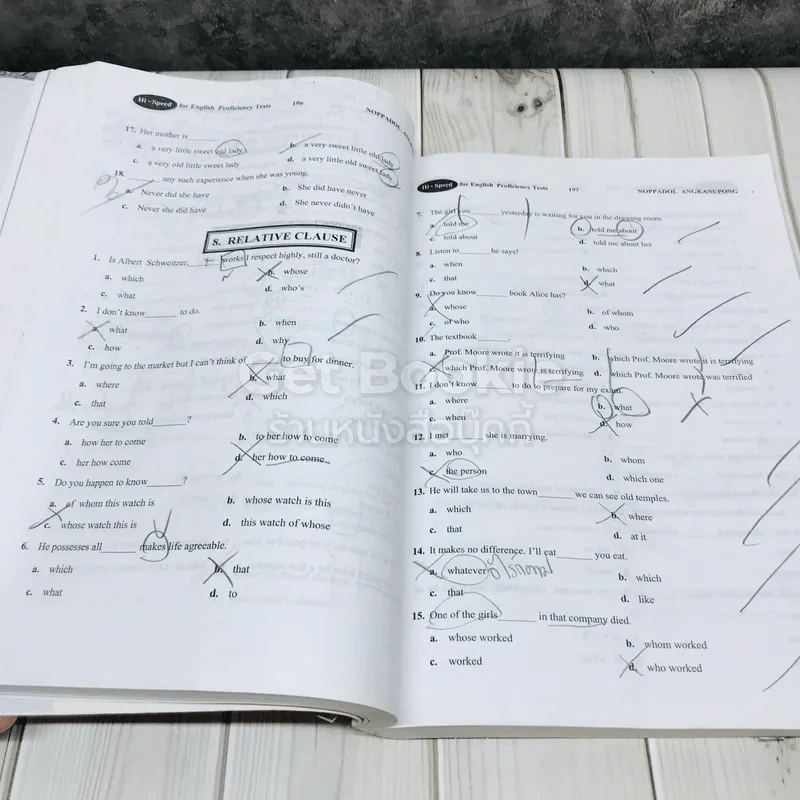 Hi - Speed for English Proficiency Tests 196 NOPPADOL
17. Her mother is
a. a very little sweet old lady.
b. a very sweet little old lady
c. a very old little sweet lady
d. a very little old sweet lady
18. any such experience when she was young.
a. Never did she have
b. She did have never
c. Never she did have
d. She never didn't have
8. RELATIVE CLAUSE
1. Is Albert Schweitzer, works I respect highly, still a doctor?
a. which
b. whose
c. what
d. who's
2. I don't know to do.
a. what
b. when
c. how
d. why
3. I'm going to the market but I can't think of to buy for dinner.
a. where
b. what
c. that
d. which
4. Are you sure you told ?
a. how her to come
b. to her how to come
c. her how come
d. her how to come
5. Do you happen to know ?
a. of whom this watch is
b. whose watch is this
c. whose watch this is
d. this watch of whose
6. He possesses all makes life agreeable.
a. which
b. that
c. what
d. to
Hi - Speed for English Proficiency Tests 197 NOPPADOL ANGKANUPONG
7. The girl you yesterday is waiting for you in the drawing room.
a. told me
b. told me about
c. told about
d. told me about her
8. Listen to he says!
a. when
b. which
c. that
d. what
9. Do you know book Alice has?
a. whose
b. of whom
c. of who
d. who
10. The textbook
a. Prof. Moore wrote it is terrifying
b. which Prof. Moore wrote it is terrifying
c. which Prof. Moore wrote is terrifying
d. which Prof. Moore wrote was terrified
11. I don't know to do to prepare for my exam.
a. where
b. what
c. when
d. how
12. I met she is marrying.
a. who
b. whom
c. the person
d. which one
13. He will take us to the town we can see old temples.
a. which
b. where
c. that
d. at it
14. It makes no difference. I'll eat you eat.
a. whatever
b. which
c. that
d. like
15. One of the girls in that company died.
a. whose worked
b. whom worked
c. worked
d. who worked
Get Booki
ร้านหนังสือบุ๊คกี้